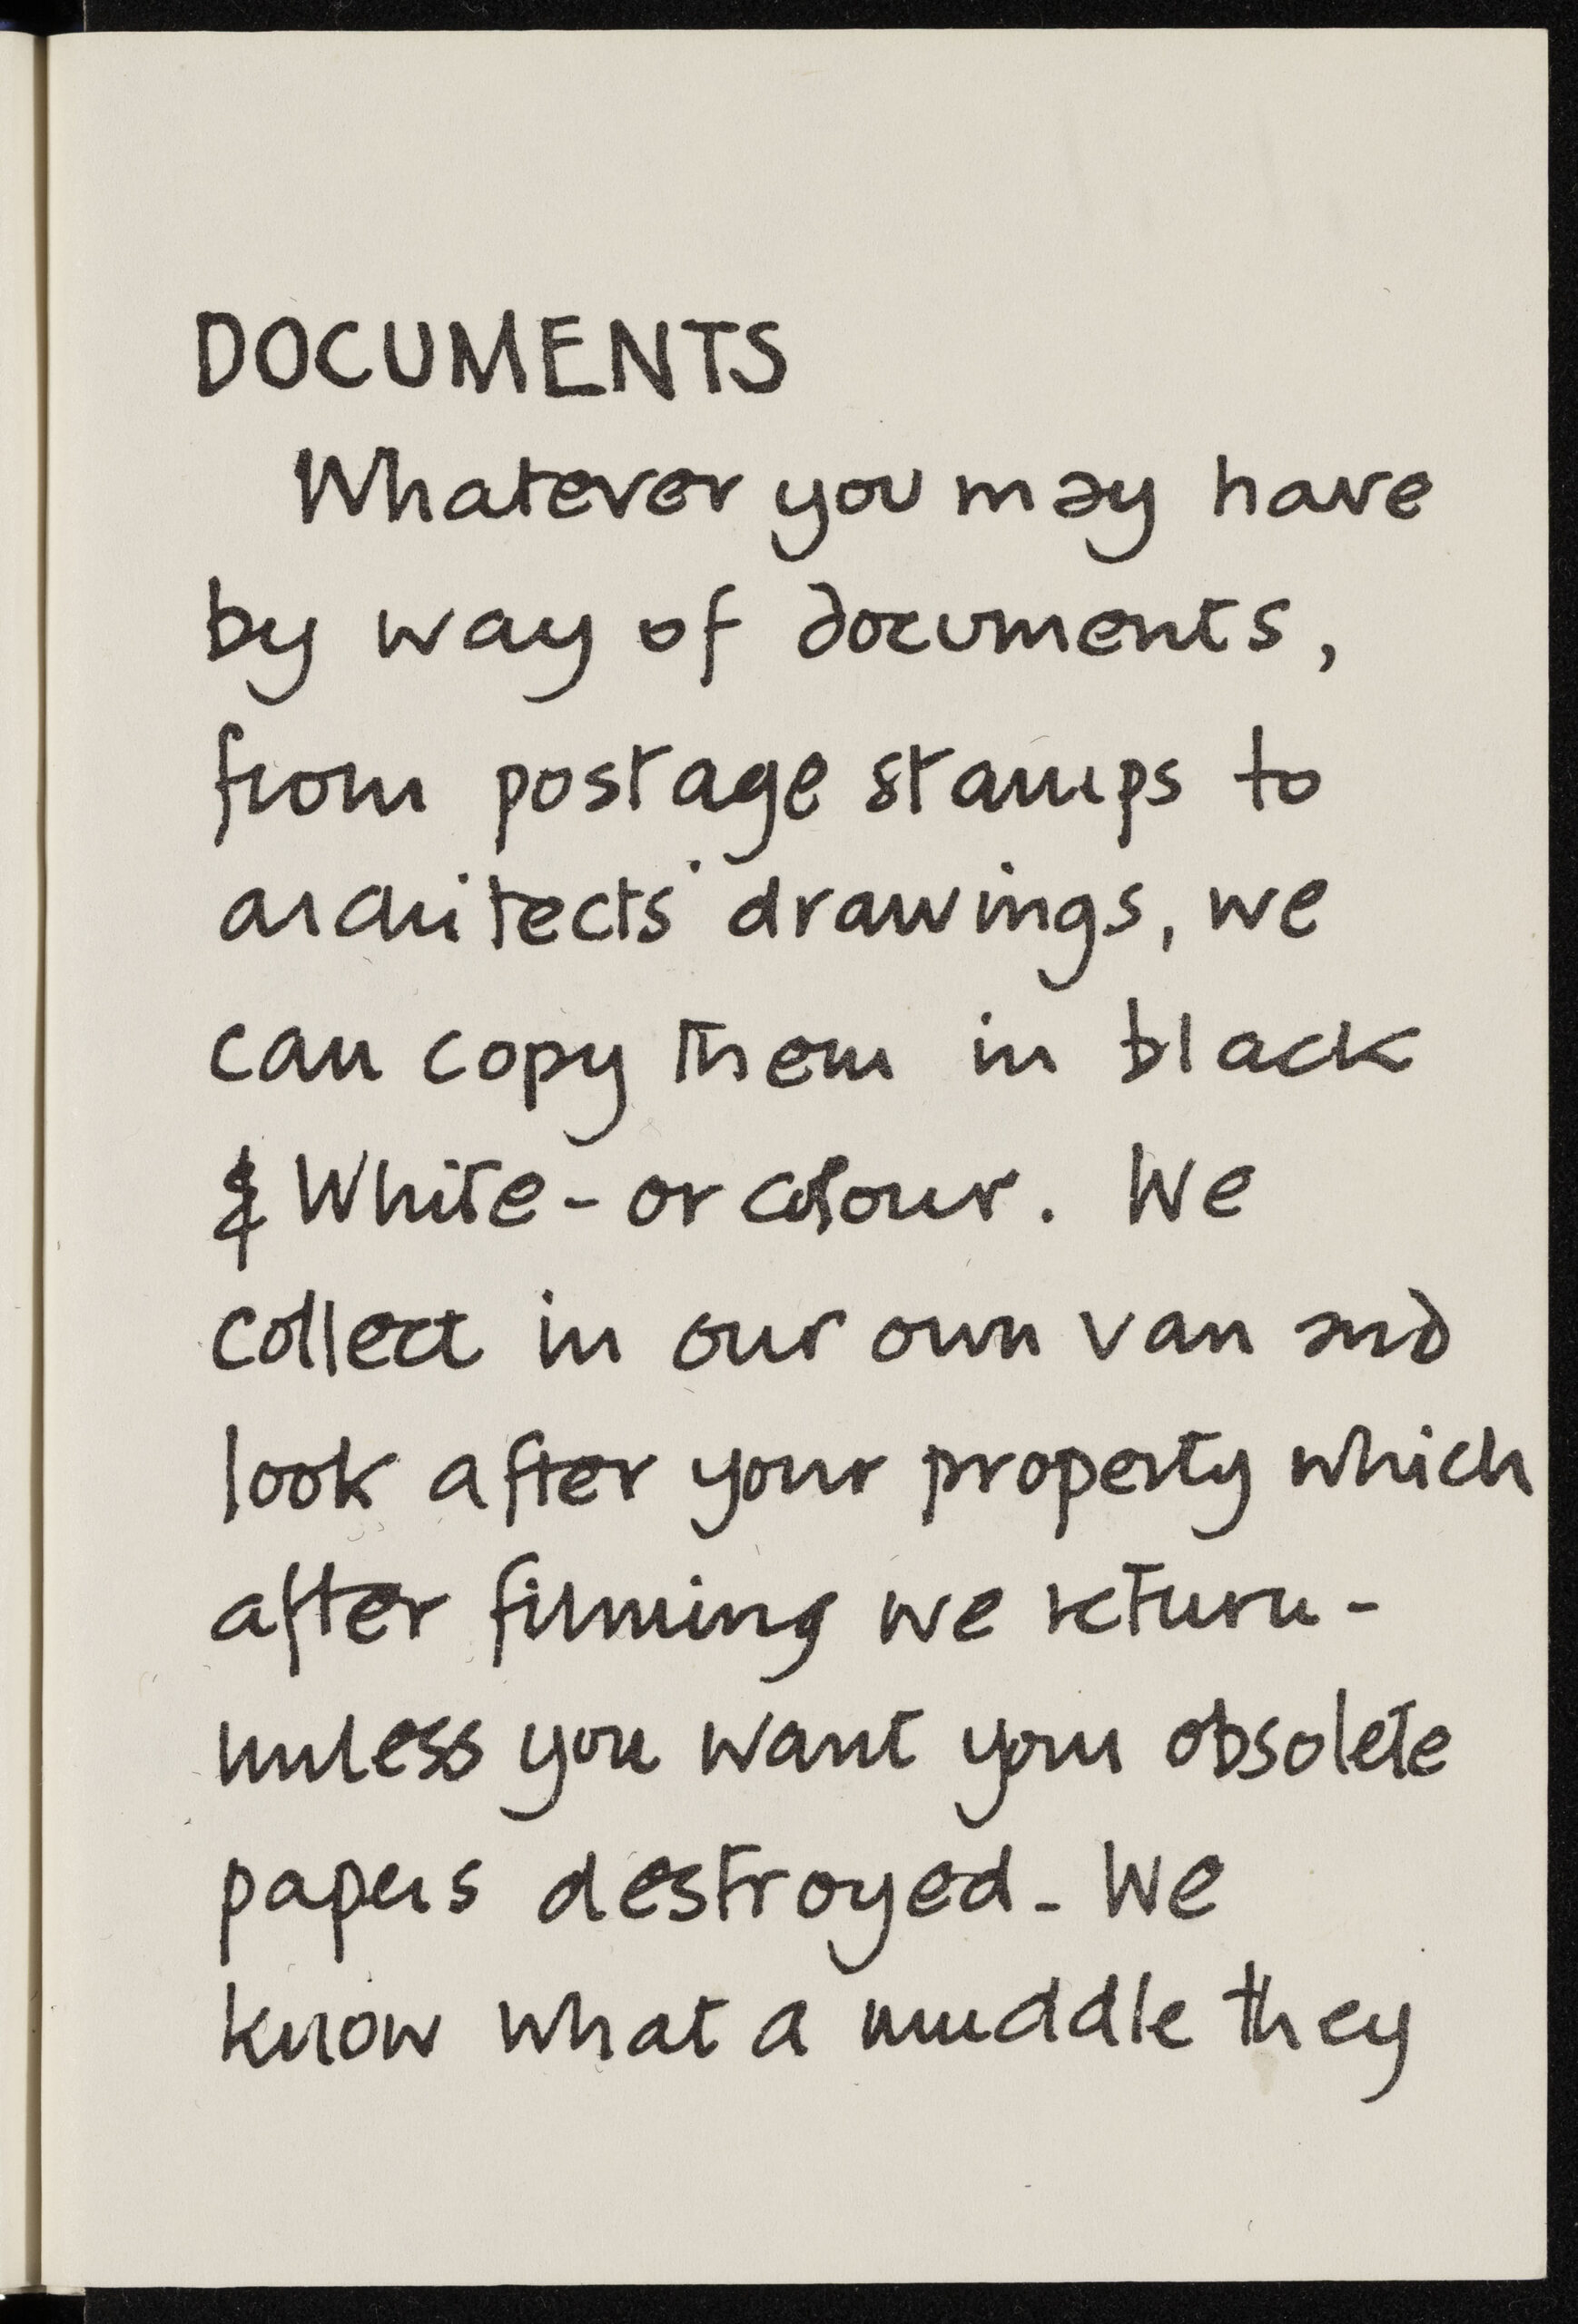 DOCUMENTS
Whatever you may have
by way of documents,
from postage stamps to
architects' drawings, we
can copy them in black
& White - or colour. We
collect in our own van and
look after your property which
after filming we return -
unless you want your obsolete
papers destroyed. We
know what a muddle they